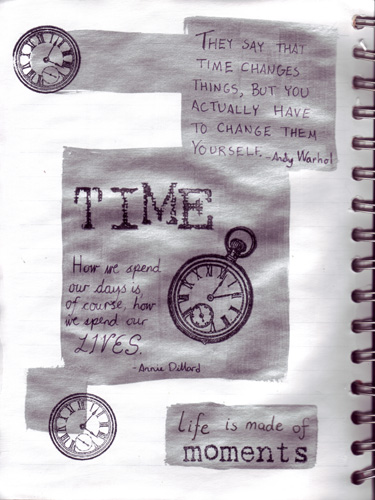 THEY SAY THAT
TIME CHANGES
THINGS, BUT YOU
ACTUALLY HAVE
TO CHANGE THEM
YOURSELF. -Andy Warhol
TIME
How we spend
our days is,
of course, how
we spend our
LIVES.
-Annie Dillard
Life is made of
moments